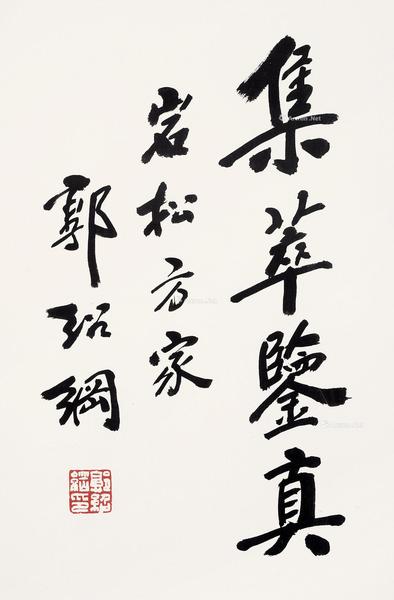 集萃鑒真
岩松方家
郭紹綱